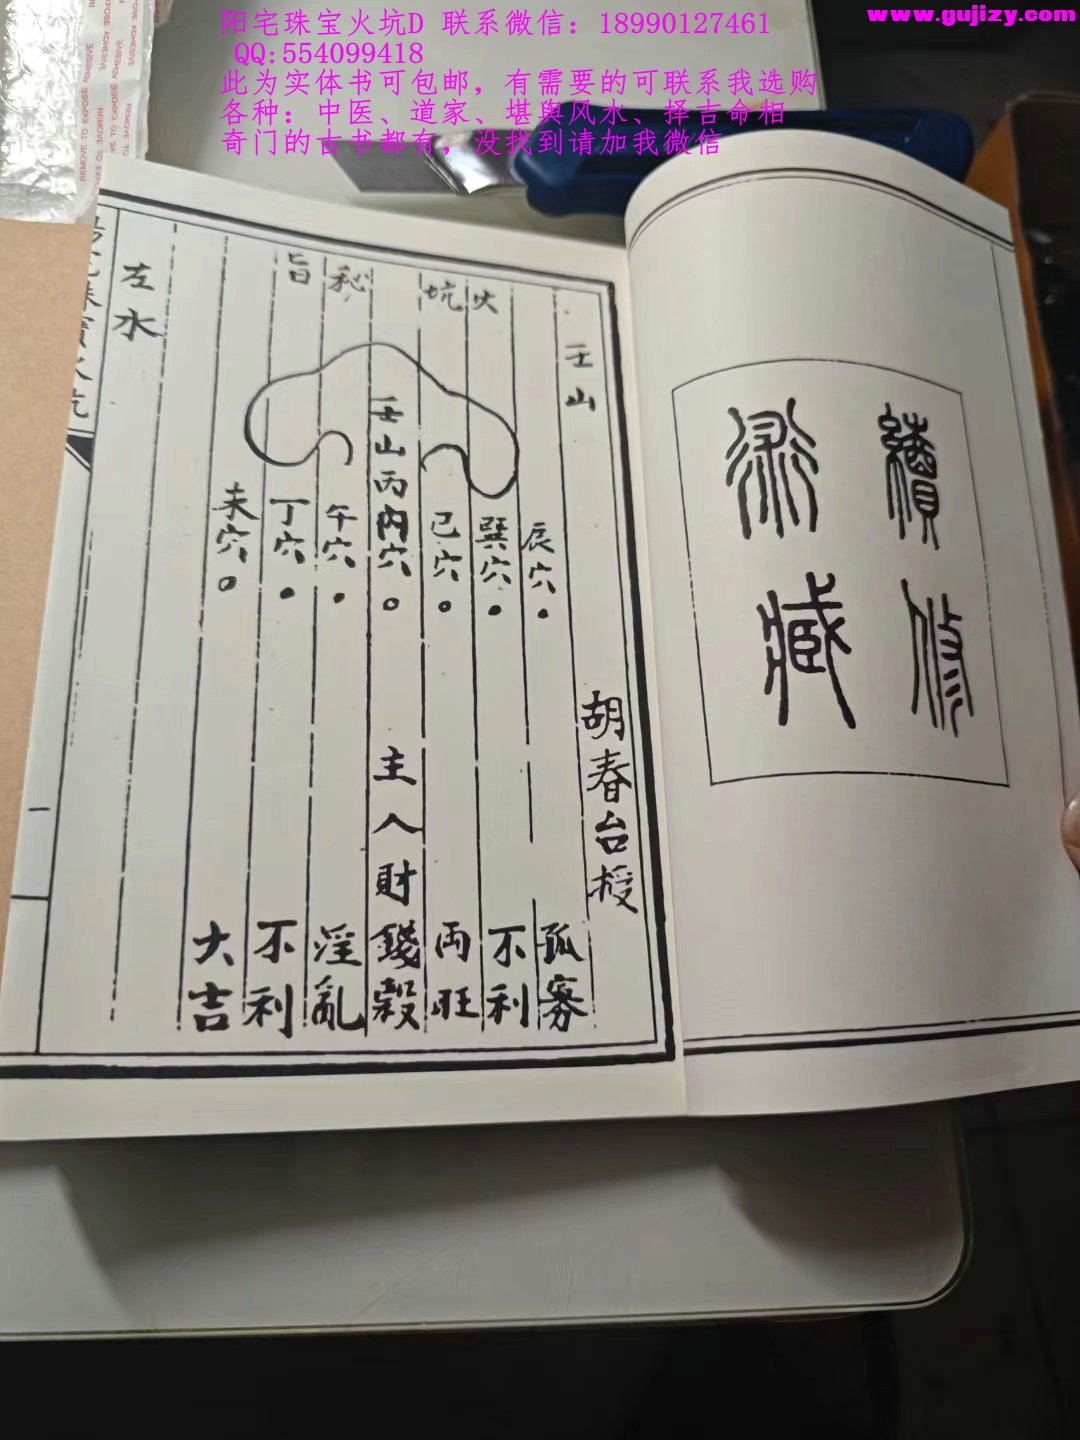 www.gujizy.com
阳宅珠宝火坑D 联系微信：18990127461
QQ:554099418
此为实体书可包邮，有需要的可联系我选购
各种：中医、道家、堪舆风水、择吉命相
奇门的古书都有，没找到请加我微信
REMOVE TO EXPOSE ADHESIVE
續修
藏
火坑秘旨
壬山
胡春台授
辰穴 孤寡
巽穴 不利
巳穴 両旺
壬山丙內穴 主人財錢穀
午穴 淫亂
丁穴 不利
未穴 大吉
左水
珠寶火坑
一